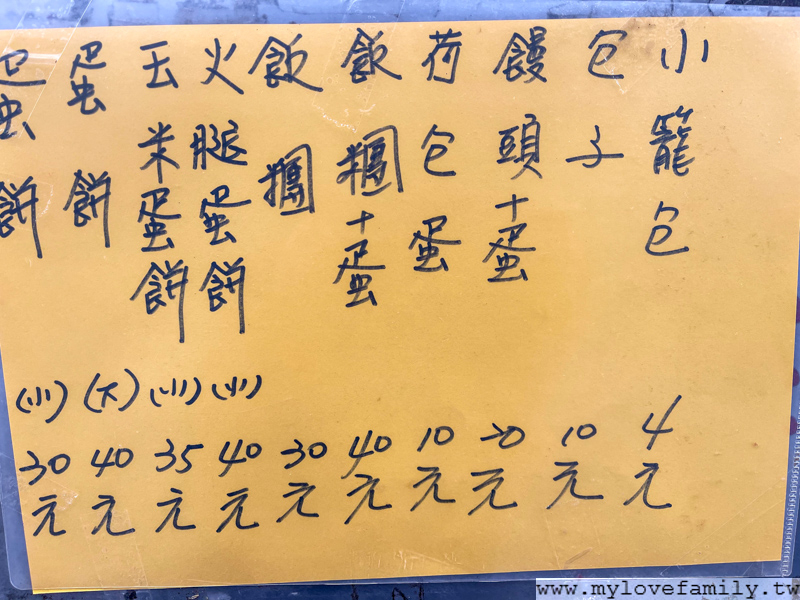 小籠包 4元
包子 10元
饅頭+蛋 20元
荷包蛋 10元
飯糰+蛋 40元
飯糰 30元
火腿蛋餅 (小) 40元
玉米蛋餅 (小) 35元
蛋餅 (大) 40元
蛋餅 (小) 30元
www.mylovefamily.tw